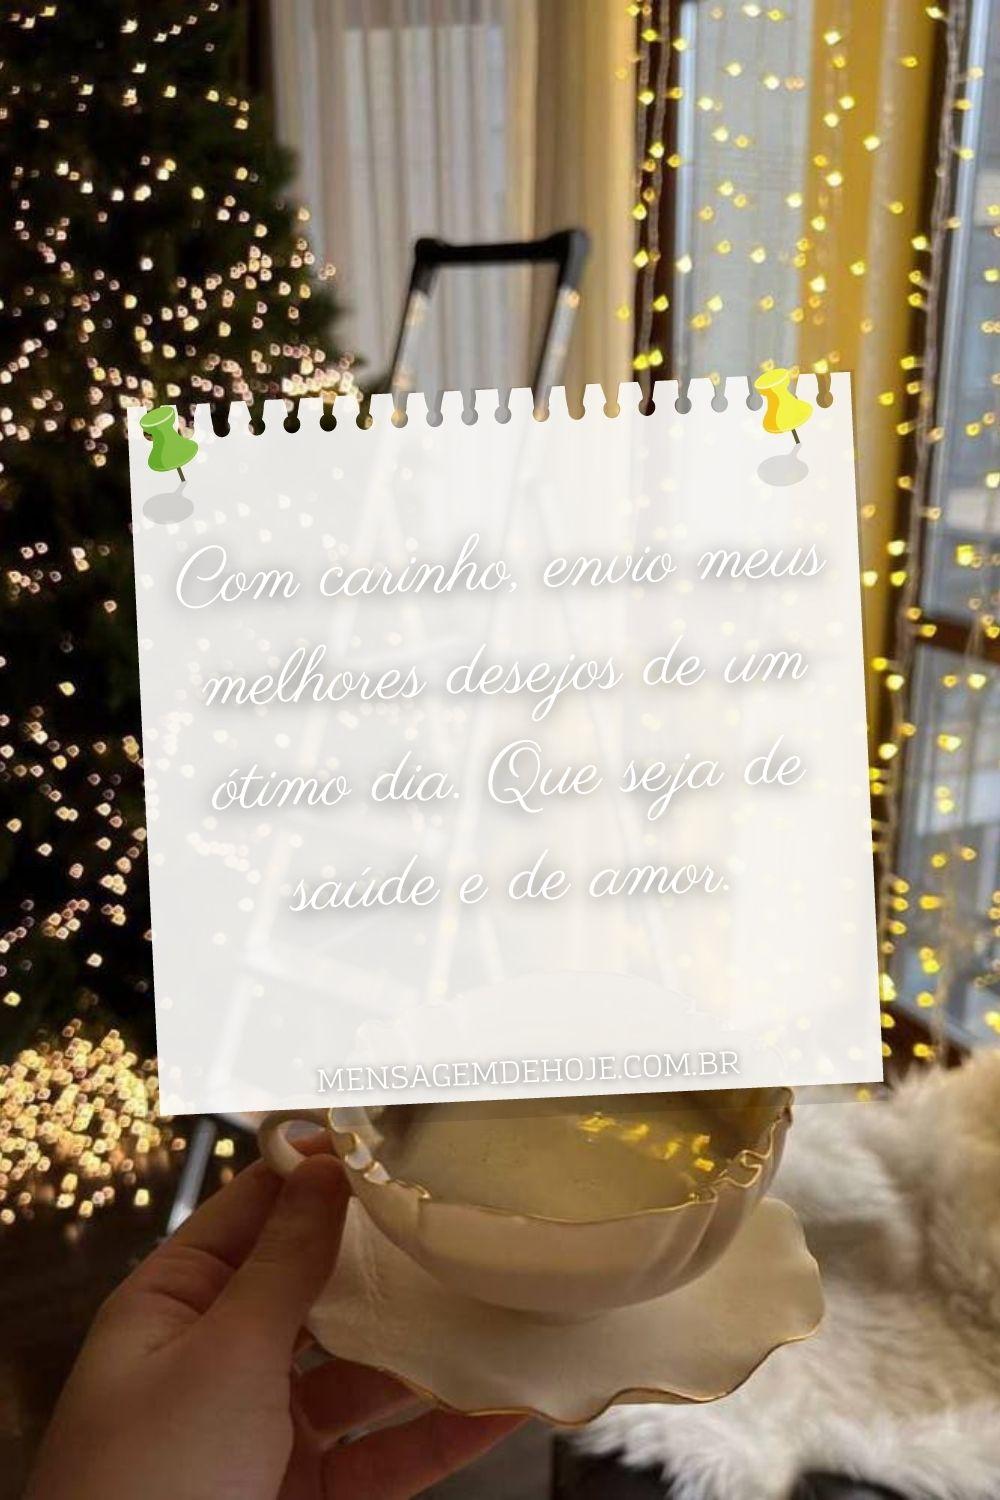 Com carinho, envio meus
melhores desejos de um
ótimo dia. Que seja de
saúde e de amor.
MENSAGEMDEHOJE.COM.BR